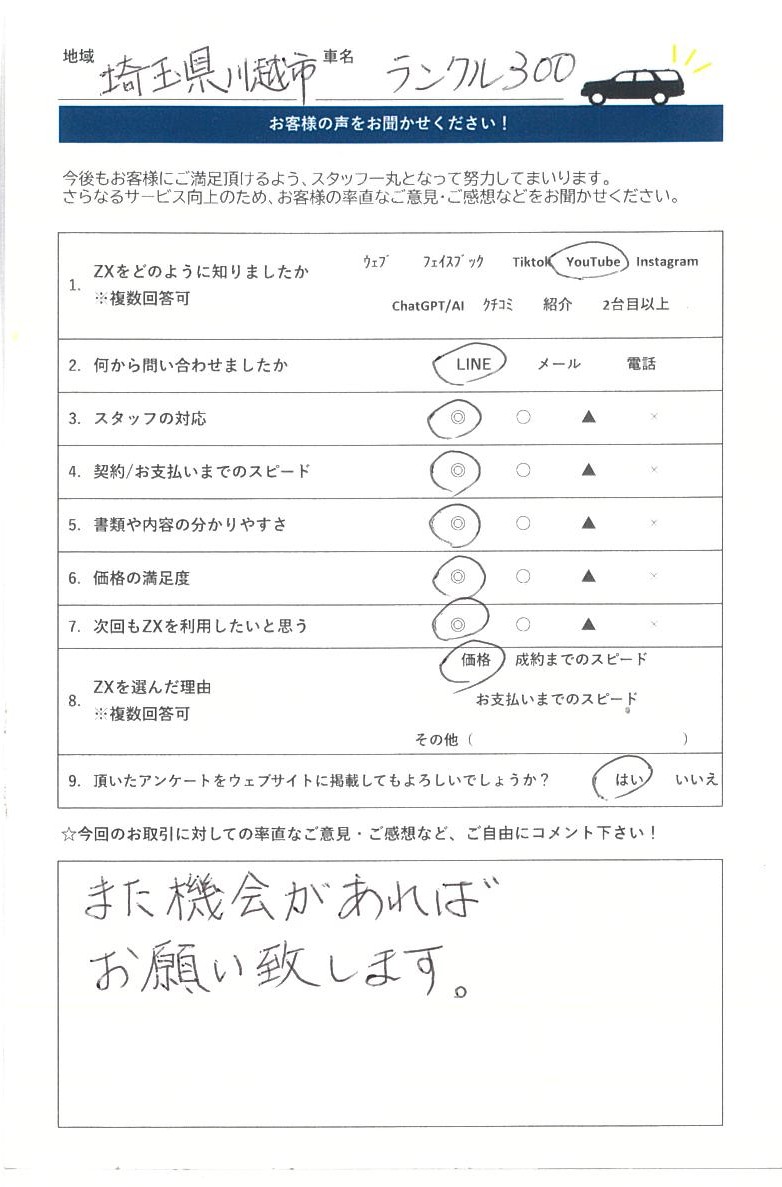 地域 埼玉県川越市 車名 ランクル300
お客様の声をお聞かせください！
今後もお客様にご満足頂けるよう、スタッフ一丸となって努力してまいります。
さらなるサービス向上のため、お客様の率直なご意見・ご感想などをお聞かせください。
1. ZXをどのように知りましたか
※複数回答可
ｳｪﾌﾞ ﾌｪｲｽﾌﾞｯｸ Tiktok YouTube Instagram
ChatGPT/AI ｸﾁｺﾐ 紹介 2台目以上
2. 何から問い合わせましたか LINE メール 電話
3. スタッフの対応 ◎ ○ ▲ ×
4. 契約/お支払いまでのスピード ◎ ○ ▲ ×
5. 書類や内容の分かりやすさ ◎ ○ ▲ ×
6. 価格の満足度 ◎ ○ ▲ ×
7. 次回もZXを利用したいと思う ◎ ○ ▲ ×
8. ZXを選んだ理由
※複数回答可
価格 成約までのスピード
お支払いまでのスピード
その他（ ）
9. 頂いたアンケートをウェブサイトに掲載してもよろしいでしょうか？ はい いいえ
☆今回のお取引に対しての率直なご意見・ご感想など、ご自由にコメント下さい！
また機会があれば
お願い致します。